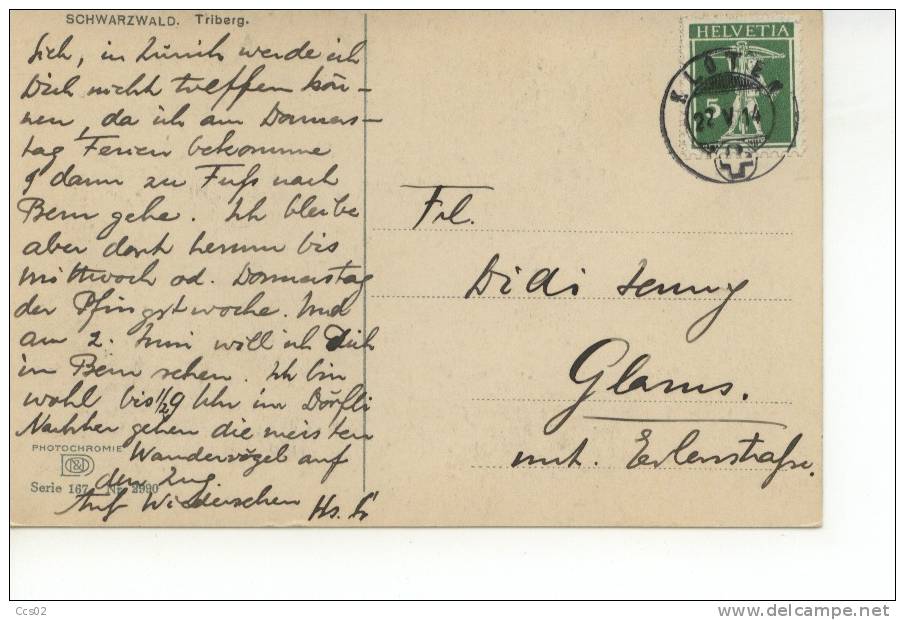 SCHWARZWALD. Triberg.
Sieh, in Zürich werde ich
Dich nicht treffen kön-
nen, da ich am Donners-
tag Ferien bekomme
& dann zu Fuss nach
Bern gehe. Ich bleibe
aber dort herum bis
Mittwoch od. Donnerstag
der Pfingstwoche. Und
am 2. Juni will ich Dich
in Bern sehen. Ich bin
wohl bis 1/2 9 Uhr im Dörfli
Nachher gehen die meisten
Wandervögel auf
den Zug.
Auf Wiedersehen
PHOTOCHROMIE
Serie 167 Nr. 2990
HELVETIA
5
KLOTEN
22 V 14
Frl.
Didi Jenny
Glarus.
unt. Erlenstraße.
Ccs02
http://www.delcampe.net